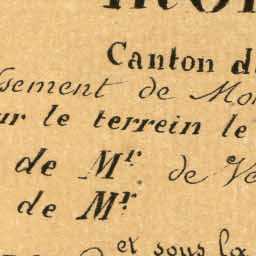 Canton d
ssement de Mo
ur le terrein le
de Mr. de Ve
de Mr.
et sous la